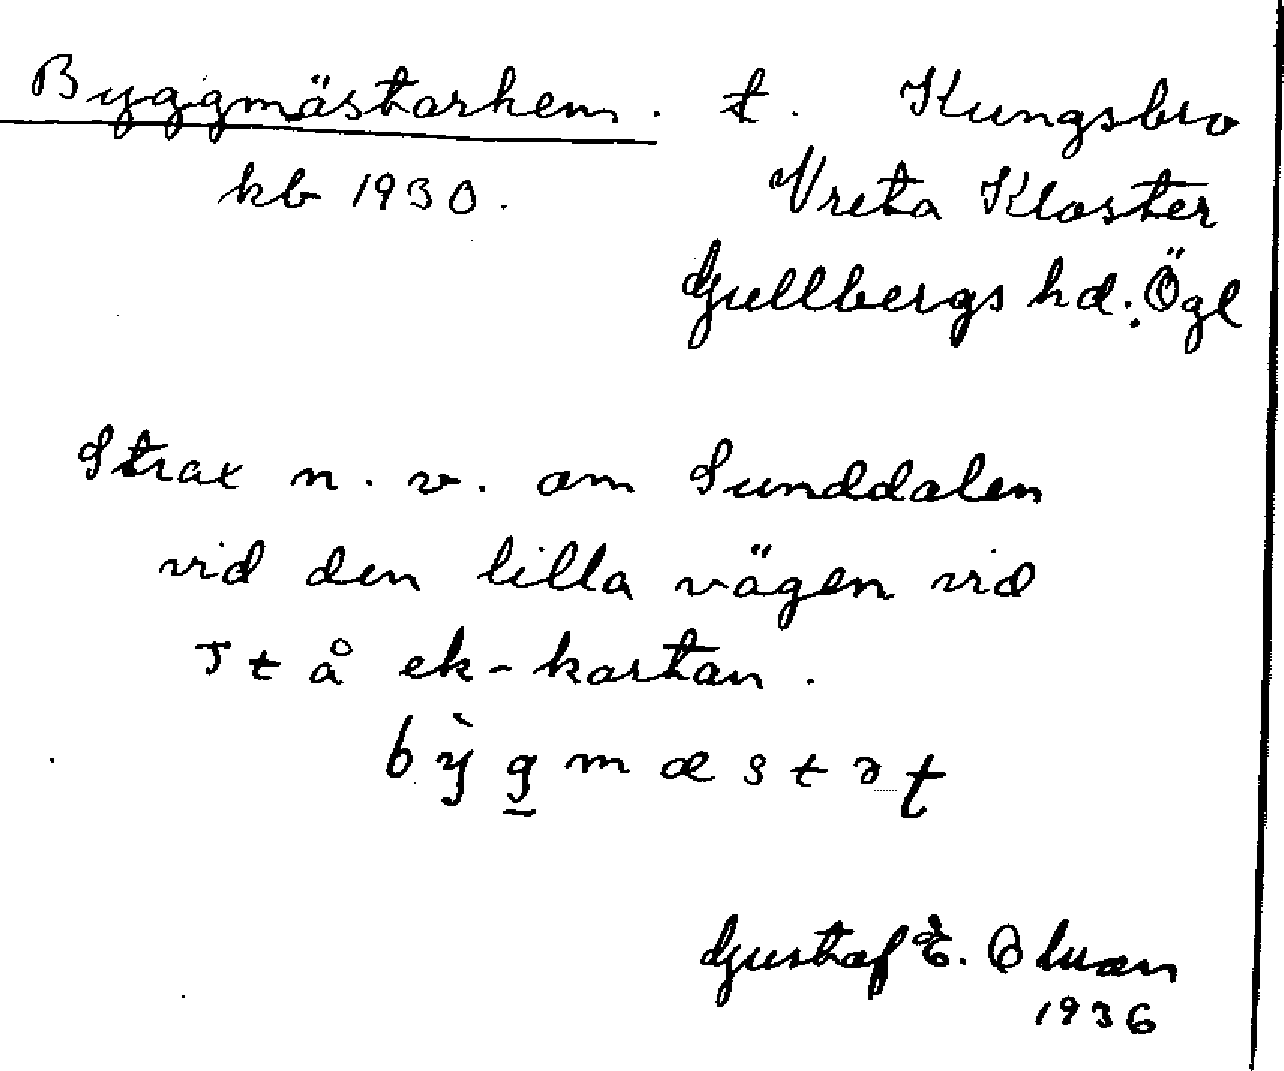 Byggmästarhem. t. Kungsbro
kb 1930. Vreta Kloster
Gullbergs hd. Ögl
Strax n. v. om Sunddalen
vid den lilla vägen vid
st å ek-kartan.
Gustaf E.
1936